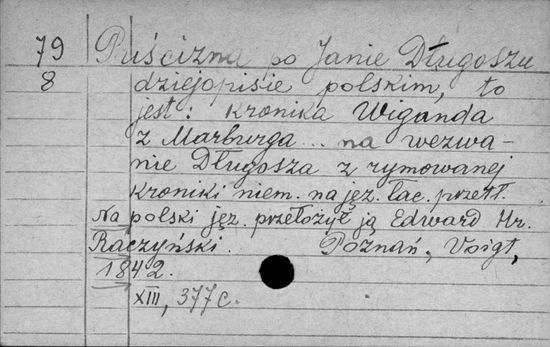 79 Puścizna po Janie Długoszu
8 dziejopisie polskim, to
jest: Kronika Wiganda
z Marburga... na wezwa-
nie Długosza z rymowanej
kroniki niem. na jęz. łac. przetł.
Na polski jęz. przełożył ją Edward Hr.
Raczyński. Poznań, Voigt,
1842.
XIII, 377 c.